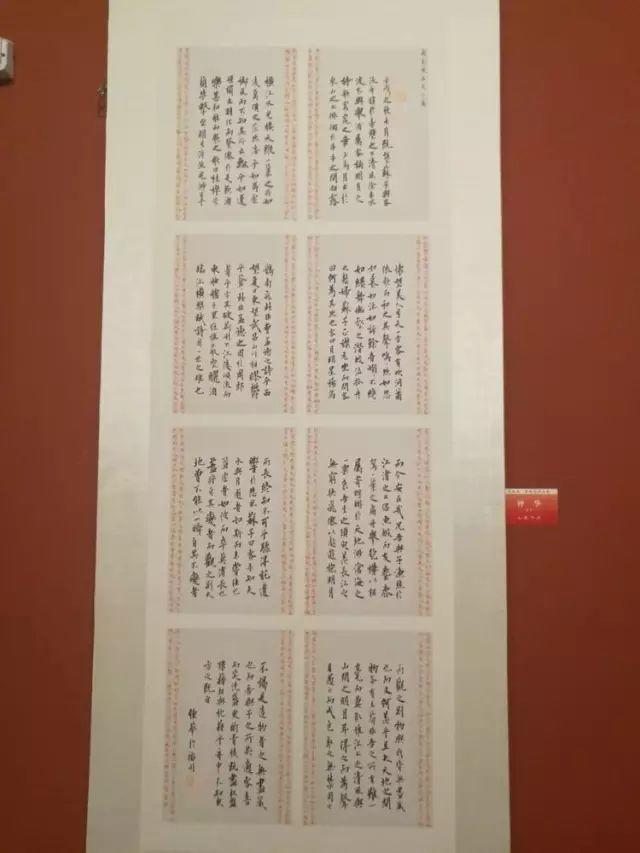 壬戌之秋七月既望蘇子與客
泛舟遊於赤壁之下清風徐來水
波不興舉酒屬客誦明月之
詩歌窈窕之章少焉月出於
東山之上徘徊於斗牛之間白露
橫江水光接天縱一葦之所如
凌萬頃之茫然浩浩乎如馮虛
御風而不知其所止飄飄乎如遺
世獨立羽化而登仙於是飲酒
樂甚扣舷而歌之歌曰桂棹兮
蘭槳擊空明兮泝流光渺渺兮
懷望美人兮天一方客有吹洞簫
倚歌而和之其聲嗚嗚然如怨
如慕如泣如訴餘音嫋嫋不絕
如縷舞幽壑之潛蛟泣孤舟
之嫠婦蘇子正襟危坐而問客
曰何為其然也客曰月明星稀烏
鵲南飛此非曹孟德之詩乎西
望夏口東望武昌山川相繆鬱
乎蒼此非孟德之困於周郎
者乎方其破荊州下江陵順流而
東也舳艫千里旌旗蔽空釃酒
臨江橫槊賦詩固一世之雄也
而今安在哉況吾與子漁樵於
江渚之上侶魚蝦而友麋鹿
駕一葉之扁舟舉匏樽以相
屬寄蜉蝣於天地渺滄海之
一粟哀吾生之須臾羨長江之
無窮挾飛仙以遨遊抱明月
而長終知不可乎驟得託遺
響於悲風蘇子曰客亦知夫
水與月逝者如斯而未嘗往也
盈虛者如彼而卒莫消長也
蓋將自其變者而觀之則天
地曾不能以一瞬自其不變者
而觀之則物與我皆無盡
也而又何羨乎且夫天地之間
物各有主苟非吾之所有雖一
毫而莫取惟江上之清風與
山間之明月耳得之而為聲
目遇之而成色取之無禁用之
不竭是造物者之無盡藏
也而吾與子之所共適客喜
而笑洗盞更酌肴核既盡杯盤
狼藉相與枕藉乎舟中不知東
方之既白